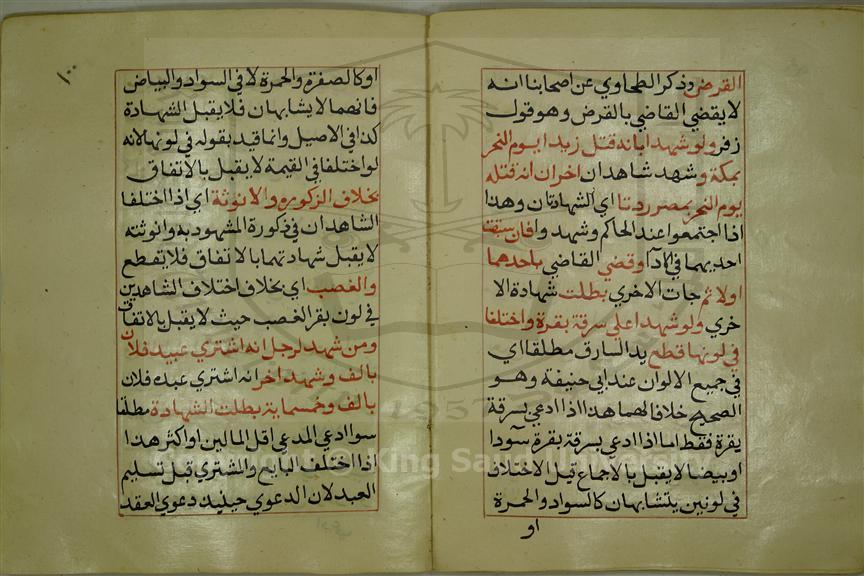 القرض وذكر الطحاوي عن اصحابنا انه
لا يقضي القاضي بالقرض وهو قول
زفر ولو شهدا بانه قتل زيدا يوم النحر
بمكة وشهد شاهدان اخران انه قتله
يوم النحر بمصر ردتا اي الشهادتان وهذا
اذا اجتمعوا عند الحاكم وشهدوا فان سبقت
احديهما في اذا وقضي القاضي باحدهما
اولا ثم جات الاخري بطلت شهادة الا
خري ولو شهدا علي سرقة بقرة واختلفا
في لونها قطع يد السارق مطلقا اي
في جميع الالوان عند ابي حنيفة وهو
الصحيح خلافا لهما هذا اذا ادعي بسرقة
بقرة فقط اما اذا ادعي بسرقة بقرة سودا
او بيضا لا يقبل بالاجماع قيل الاختلاف
في لونين يتشابهان كالسواد والحمرة
او
١٠٠
او كالصفرة والحمرة لا في السواد والبياض
فانهما لا يشابهان فلا يقبل الشهادة
كذا في الاصيل وانما قيد بقوله في لونها لانه
لو اختلفا في القيمة لا يقبل بالاتفاق
بخلاف الزكوره والانوثة اي اذا اختلفا
الشاهدان في ذكورة المشهود به وانوثته
لا يقبل شهادتهما بالاتفاق فلا يقطع
والغصب اي بخلاف اختلاف الشاهدين
في لون بقر الغصب حيث لا يقبل بالاتفاق
ومن شهد لرجل انه اشتري عبد فلان
بالف وشهد اخر انه اشتري عبده فلان
بالف وخمسماية بطلت الشهادة مطلقا
سوا ادعي المدعي اقل المالين او اكثر هذا
اذا اختلف البايع والمشتري قبل تسليم
العبد لان الدعوي حينيذ دعوي العقد
1957
King Saud University